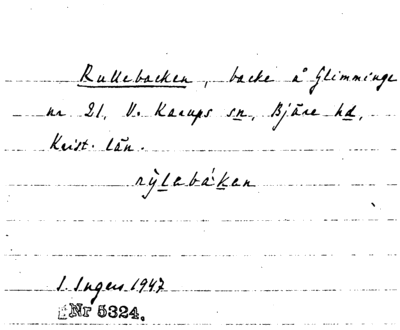 Rullebacken, backe å Glimminge
nr 21, V. Karups sn, Bjäre hd,
Krist. län.
rȳlebákan
I. Ingers 1947
Nr 5324.